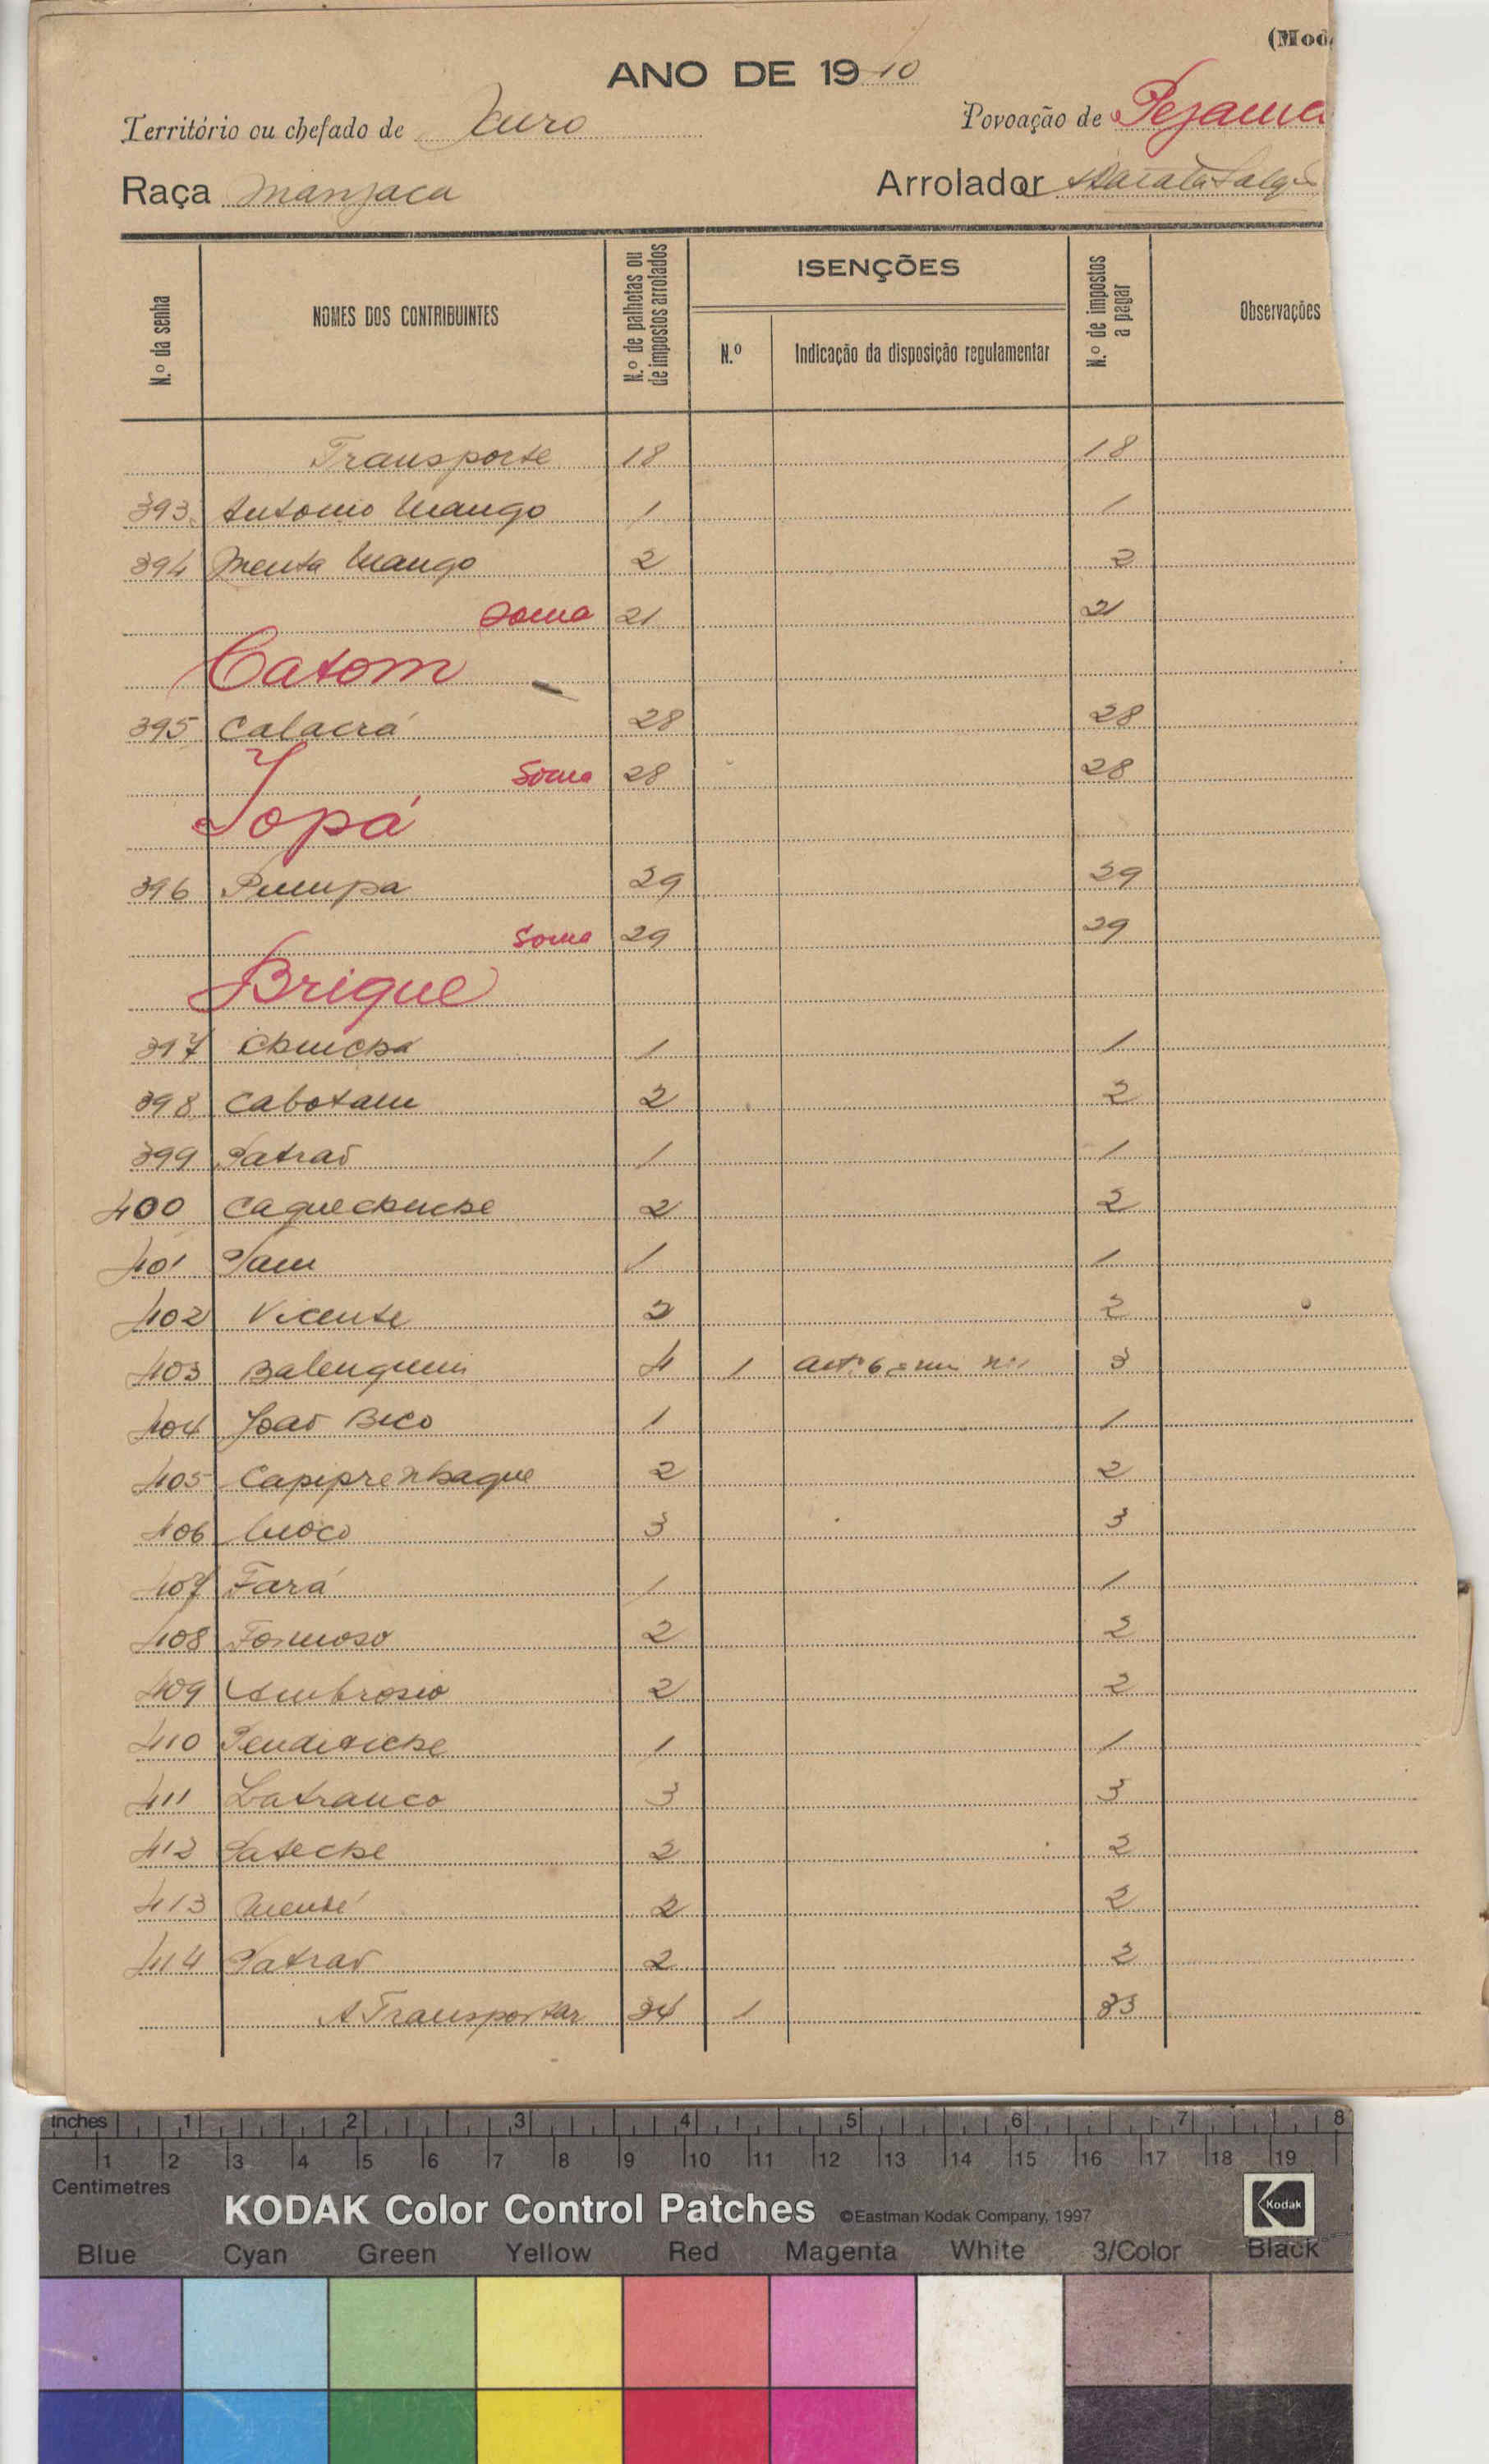 (Mod
ANO DE 1910
Território ou chefado de Xuro
Povoação de Pejama
Raça Manjaca
Arrolador
N.º da senha
NOMES DOS CONTRIBUINTES
N.º de palhotas ou de impostos arrolados
ISENÇÕES
N.º
Indicação da disposição regulamentar
N.º de impostos a pagar
Observações
Transporte 18 18
393 Antonio Mango 1 1
394 Menta Mango 2 2
Soma 21 21
Catom
395 Calacrá 28 28
Soma 28 28
Jopá
396 Pumpa 29 29
Soma 29 29
Brique
397 Chuicha 1 1
398 Cabotam 2 2
399 Patrão 1 1
400 Caquechuche 2 2
401 1 1
402 Vicente 2 2
403 Balenquim 4 1 3
404 João Bico 1 1
405 Capeprenhaque 2 2
406 Cuoco 3 3
407 Fará 1 1
408 Formoso 2 2
409 Ambrosio 2 2
410 1 1
411 Latranco 3 3
412 Pateche 2 2
413 Menté 2 2
414 Patrão 2 2
A Transportar 34 1 33
Inches 1 2 3 4 5 6 7 8
1 2 3 4 5 6 7 8 9 10 11 12 13 14 15 16 17 18 19
Centimetres
KODAK Color Control Patches ©Eastman Kodak Company, 1997 Kodak
Blue Cyan Green Yellow Red Magenta White 3/Color Black